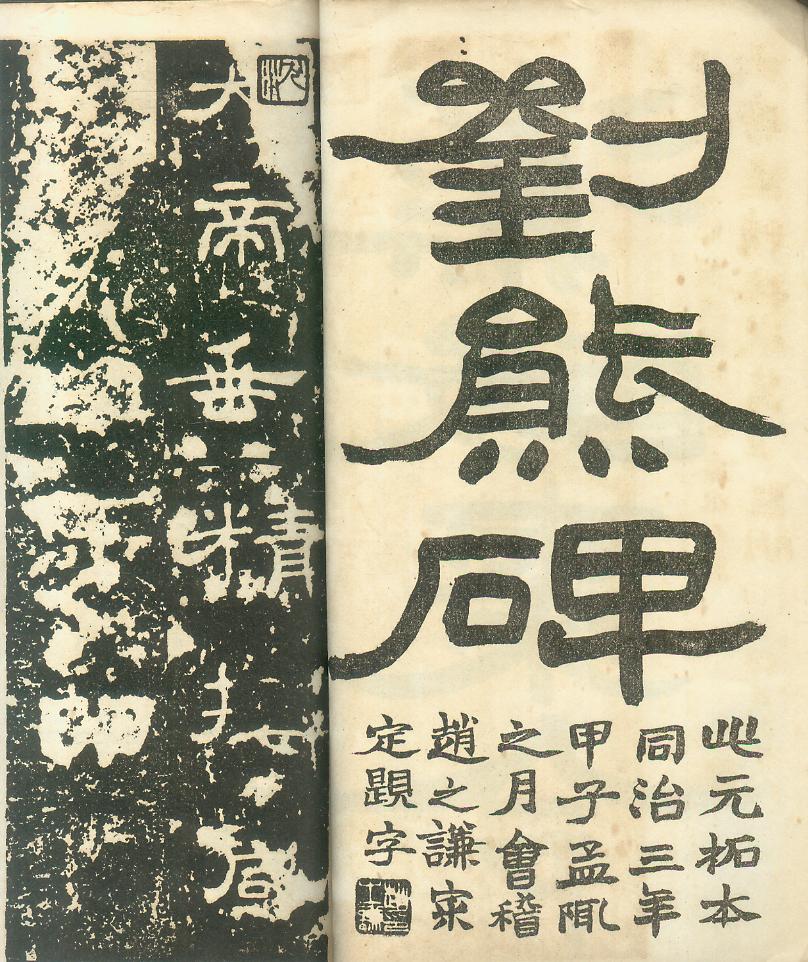 劉熊碑
此元拓本
同治三年
甲子孟陬
之月會稽
趙之謙宷
定題字
大帝垂精接感